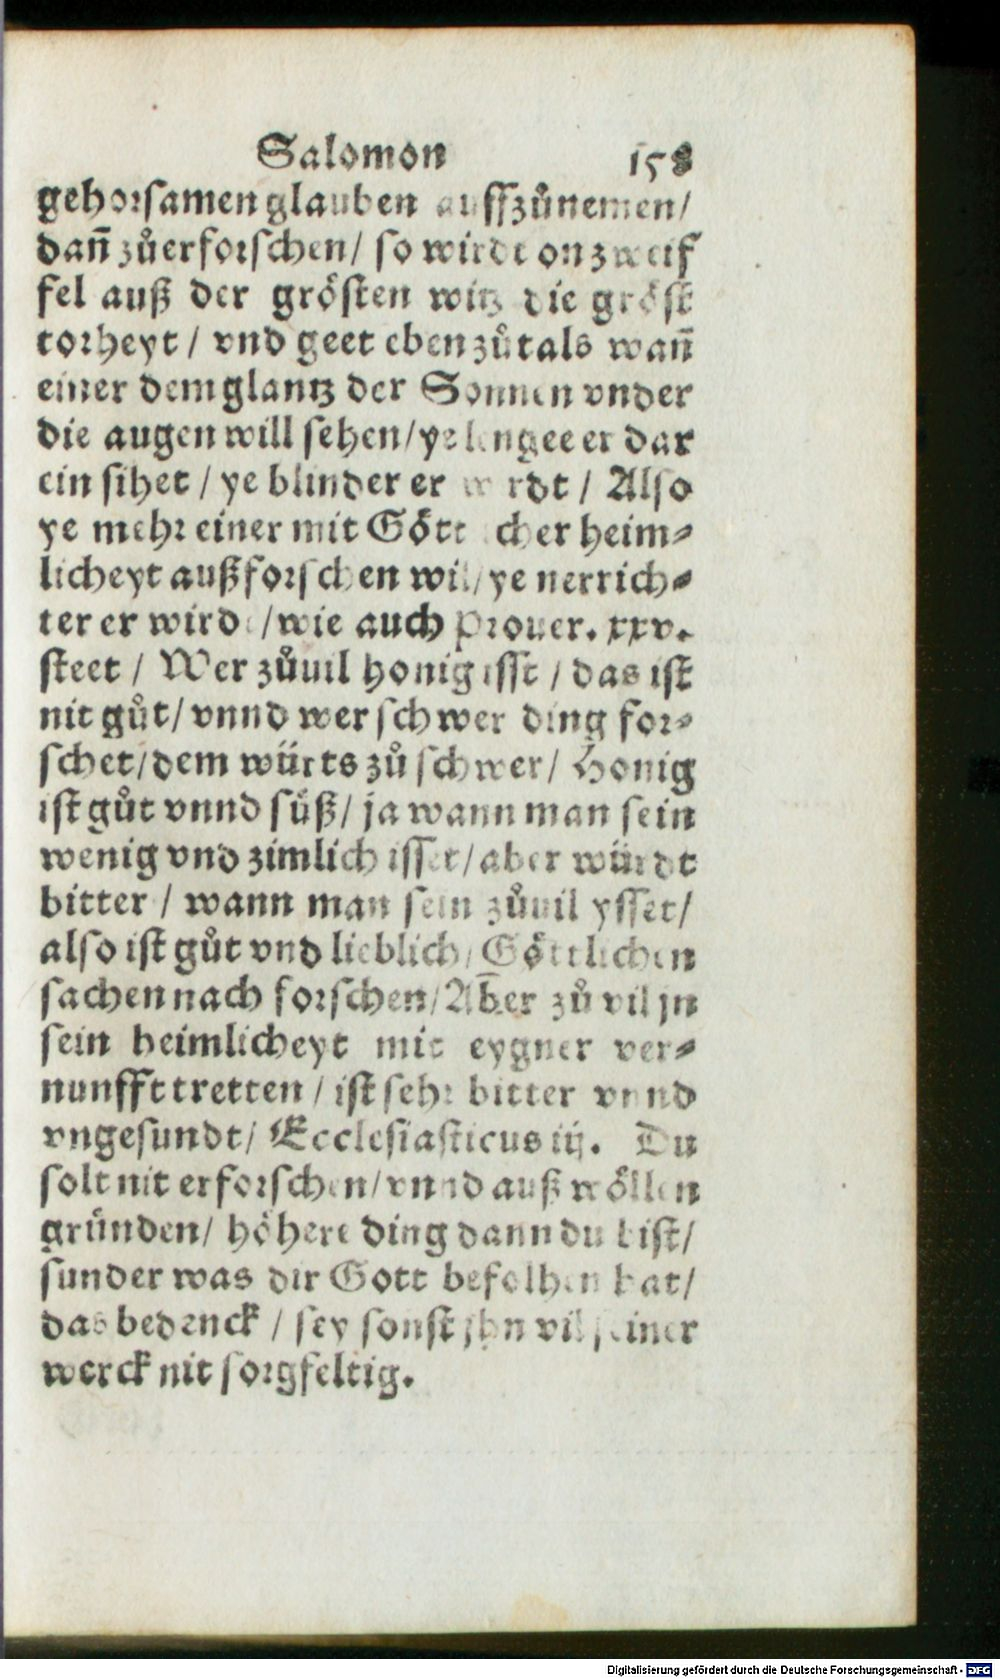 Salomon 158
gehorsamen glauben auffzůnemen/
dañ zůerforschen/ so wirdt on zweif
fel auß der grösten witz die gröst
torheyt / vnd geet eben zů tals wañ
einer dem glantz der Sonnen vnder
die augen will sehen/ ye lengee er dar
ein sihet / ye blinder er wirdt / Also
ye mehr einer mit Göttlicher heim⸗
licheyt außforschen wil/ ye nerrich⸗
ter er wirdt /wie auch Prouer. xxv.
steet / Wer zůuil honig isst / das ist
nit gůt/ vnnd wer schwer ding for⸗
schet/dem würts zů schwer/ Honig
ist gůt vnnd süß/ ja wann man sein
wenig vnd zimlich isset/ aber würdt
bitter / wann man sein zůuil ysset/
also ist gůt vnd lieblich/ Göttlichen
sachen nach forschen/ Aber zů vil jn
sein heimlicheyt mit eygner ver⸗
nunfft tretten / ist sehr bitter vnnd
vngesundt/ Ecclesiasticus iij. Du
solt nit erforschen/ vnnd auß wöllen
gründen/ höhere ding dann du bist/
sunder was dir Gott befolhen hat/
das bedenck / sey sonst jhn vil seiner
werck nit sorgfeltig.
Digitalisierung gefördert durch die Deutsche Forschungsgemeinschaft - DFG